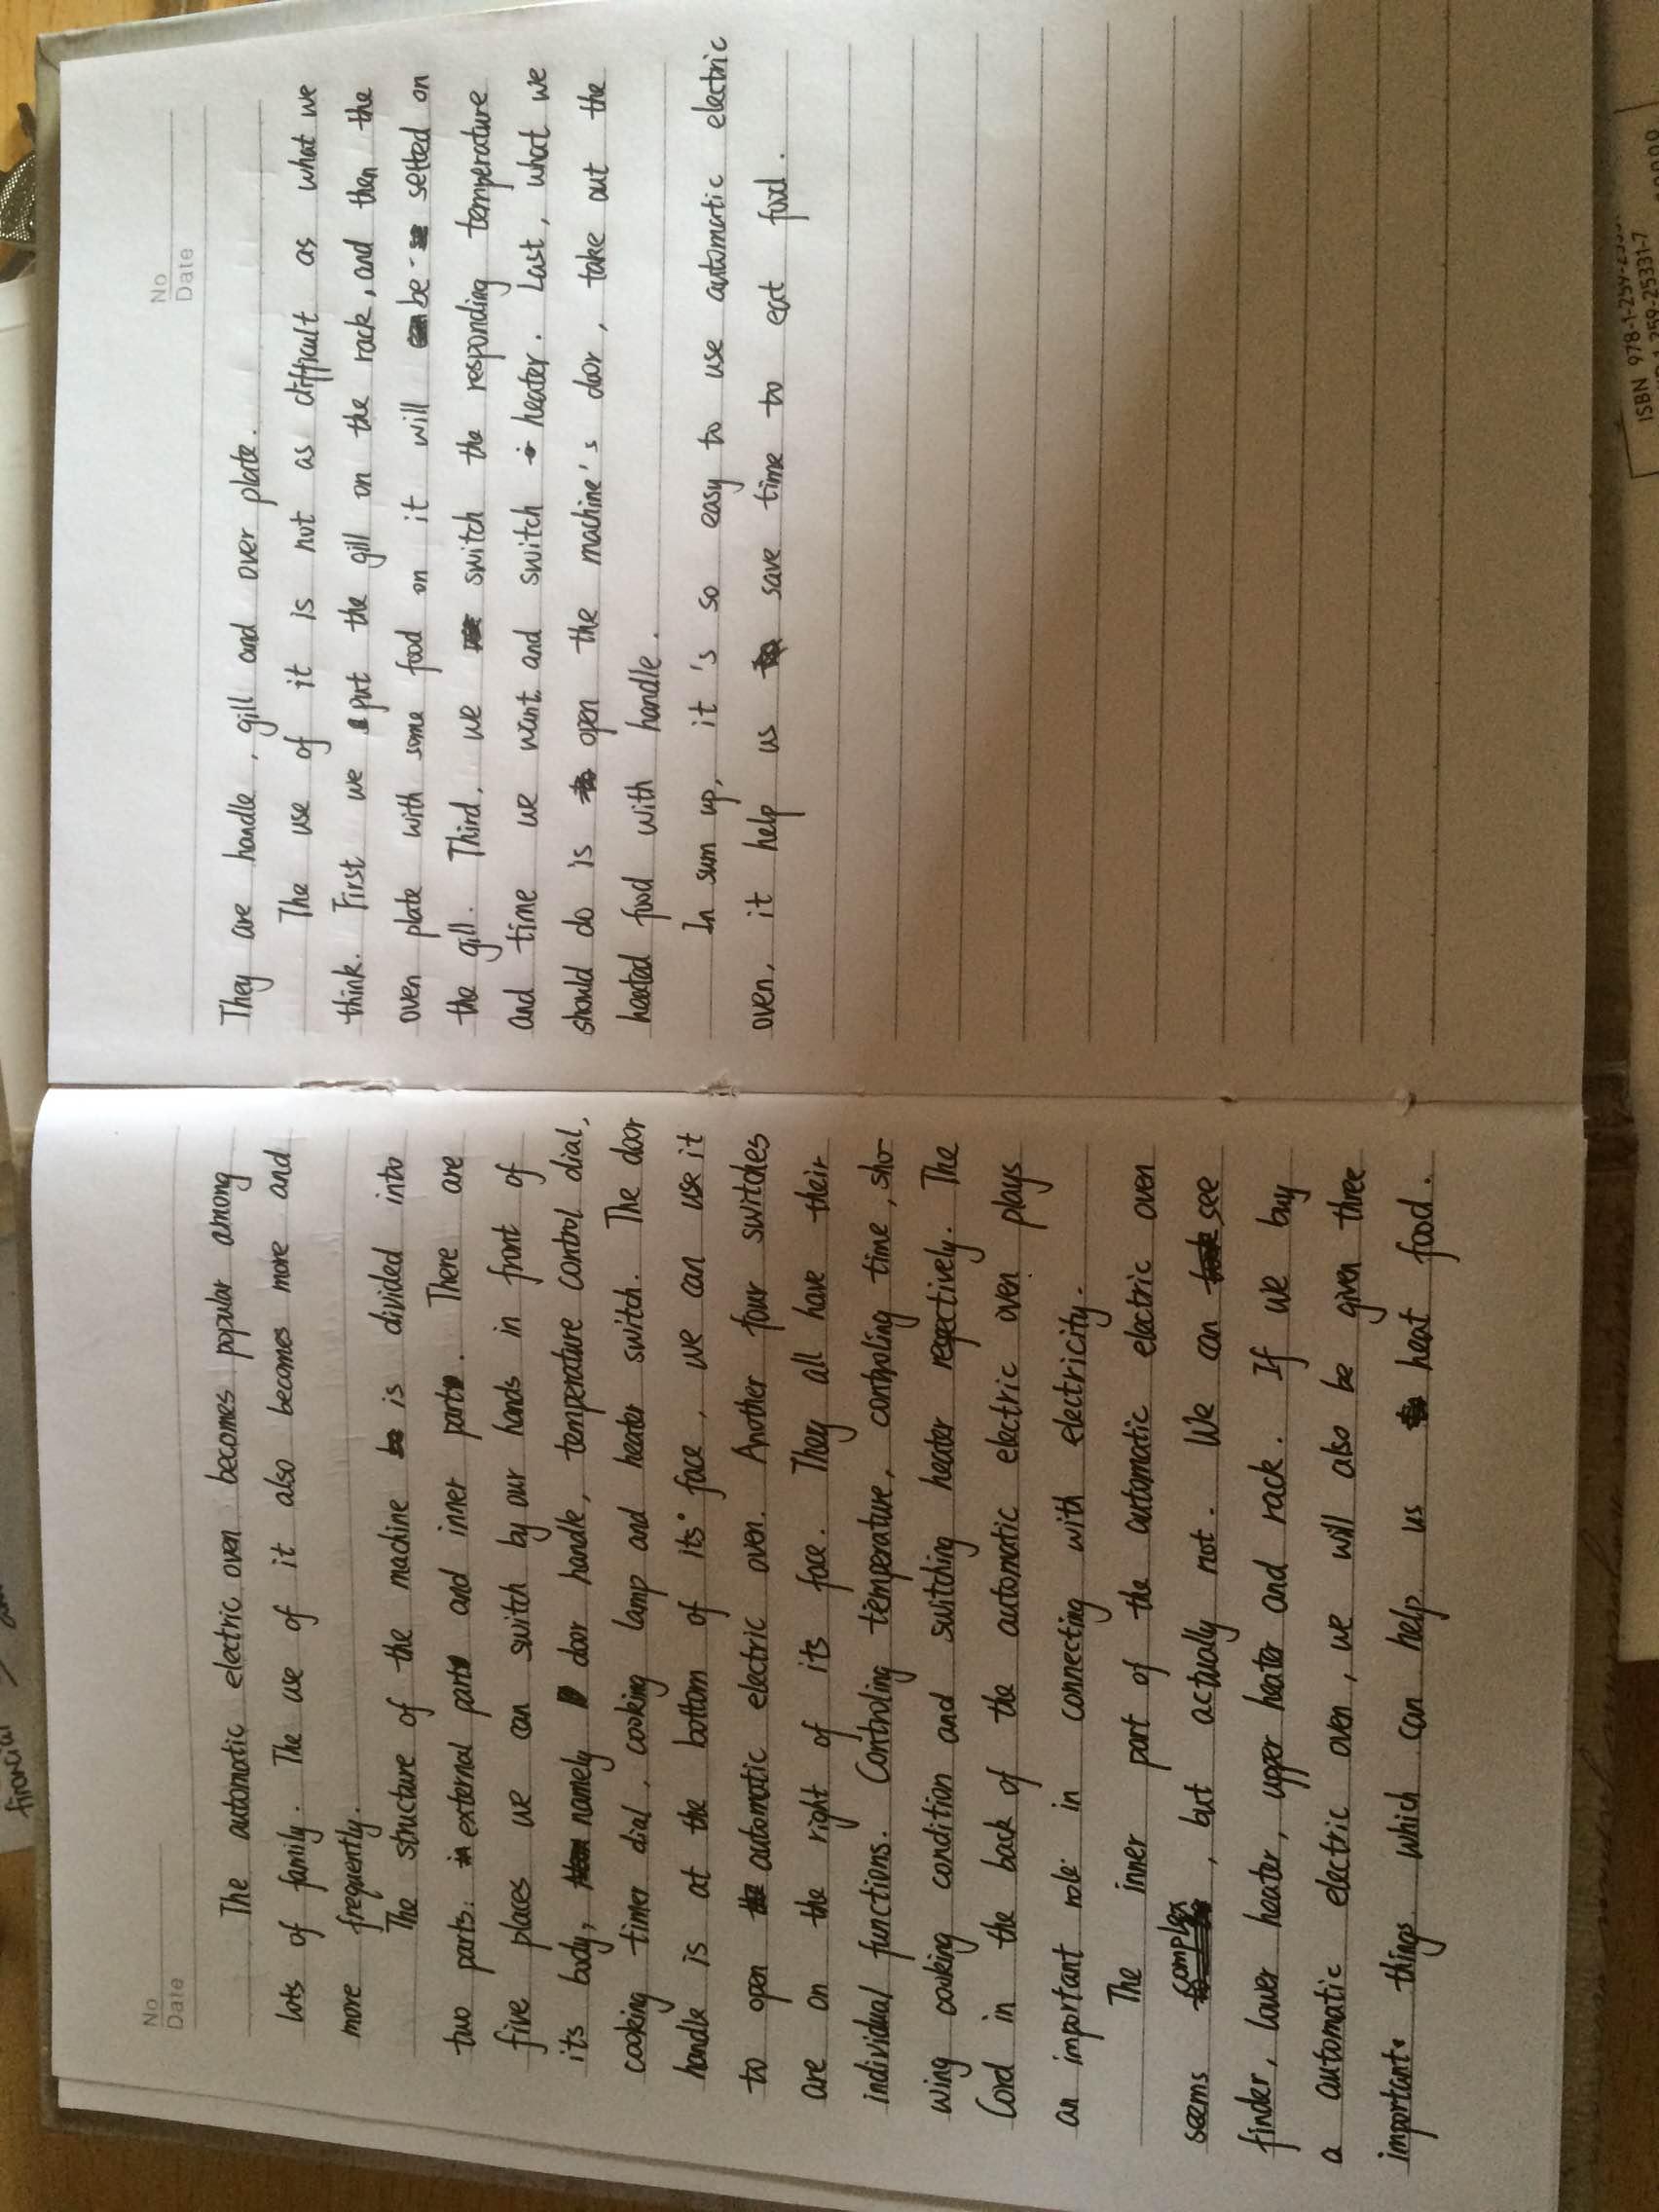 No
Date
The automatic electric oven becomes popular among
lots of family. The use of it also becomes more and
more frequently.
The structure of the machine is divided into
two parts: external part and inner part. There are
five places we can switch by our hands in front of
its body, namely door handle, temperature control dial,
cooking timer dial, cooking lamp and heater switch. The door
handle is at the bottom of its face, we can use it
to open automatic electric oven. Another four switches
are on the right of its face. They all have their
individual functions. Controling temperature, controling time, sho-
wing cooking condition and switching heater respectively. The
Cord in the back of the automatic electric oven plays
an important role in connecting with electricity.
The inner part of the automatic electric oven
seems complex, but actually not. We can see
finder, lower heater, upper heater and rack. If we buy
a automatic electric oven, we will also be given three
important things which can help us heat food.
No
Date
They are handle, gill and over plate.
The use of it is nut as difficult as what we
think. First we put the gill on the rack, and then the
oven plate with some food on it will be setted on
the gill. Third, we switch the responding temperature
and time we want and switch heater. Last, what we
should do is open the machine's door, take out the
heated food with handle.
In sum up, it's so easy to use automatic electric
oven, it help us save time to eat food.
ISBN 978-1-259-25331-7